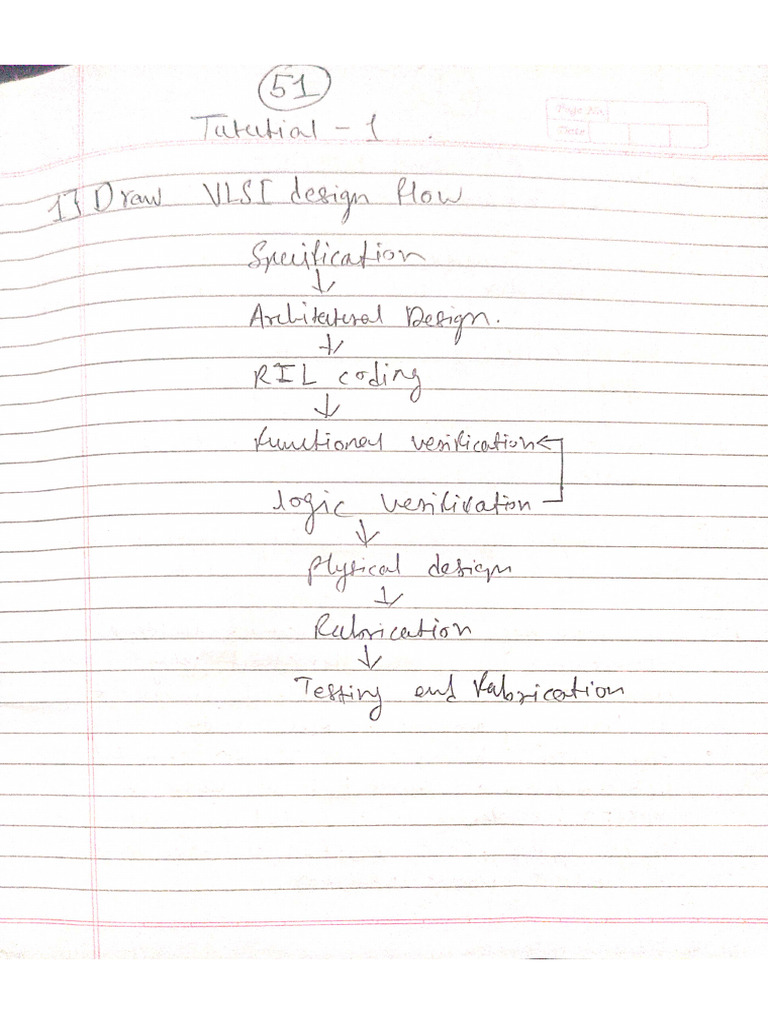 51
Tutorial - 1
Page No.
Date
1} Draw VLSI design flow
Specification
↓
Architectural Design.
↓
RIL coding
↓
functional verification
logic verification
↓
physical design
↓
Fabrication
↓
Testing and Fabrication